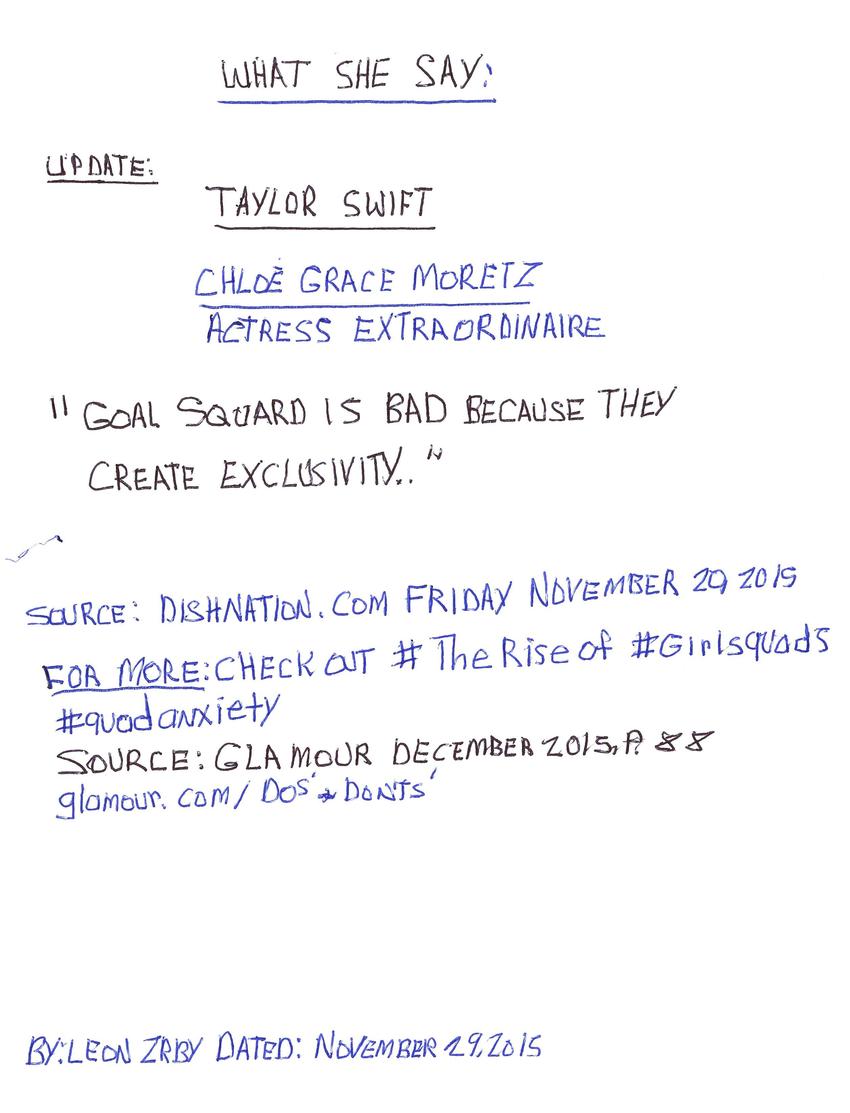 WHAT SHE SAY:
UPDATE:
TAYLOR SWIFT
CHLOË GRACE MORETZ
ACTRESS EXTRAORDINAIRE
" GOAL SQUARD IS BAD BECAUSE THEY
CREATE EXCLUSIVITY.. "
SOURCE: DISHNATION.COM FRIDAY NOVEMBER 20, 2015
FOR MORE: CHECK OUT # The Rise of #Girlsquads
#quadanxiety
SOURCE: GLAMOUR DECEMBER 2015, P. 88
glamour.com/ DOS' & DONTS'
BY: LEON ZRBY DATED: NOVEMBER 29, 2015